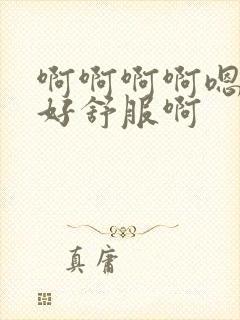 啊啊啊啊嗯
好舒服啊
真庸